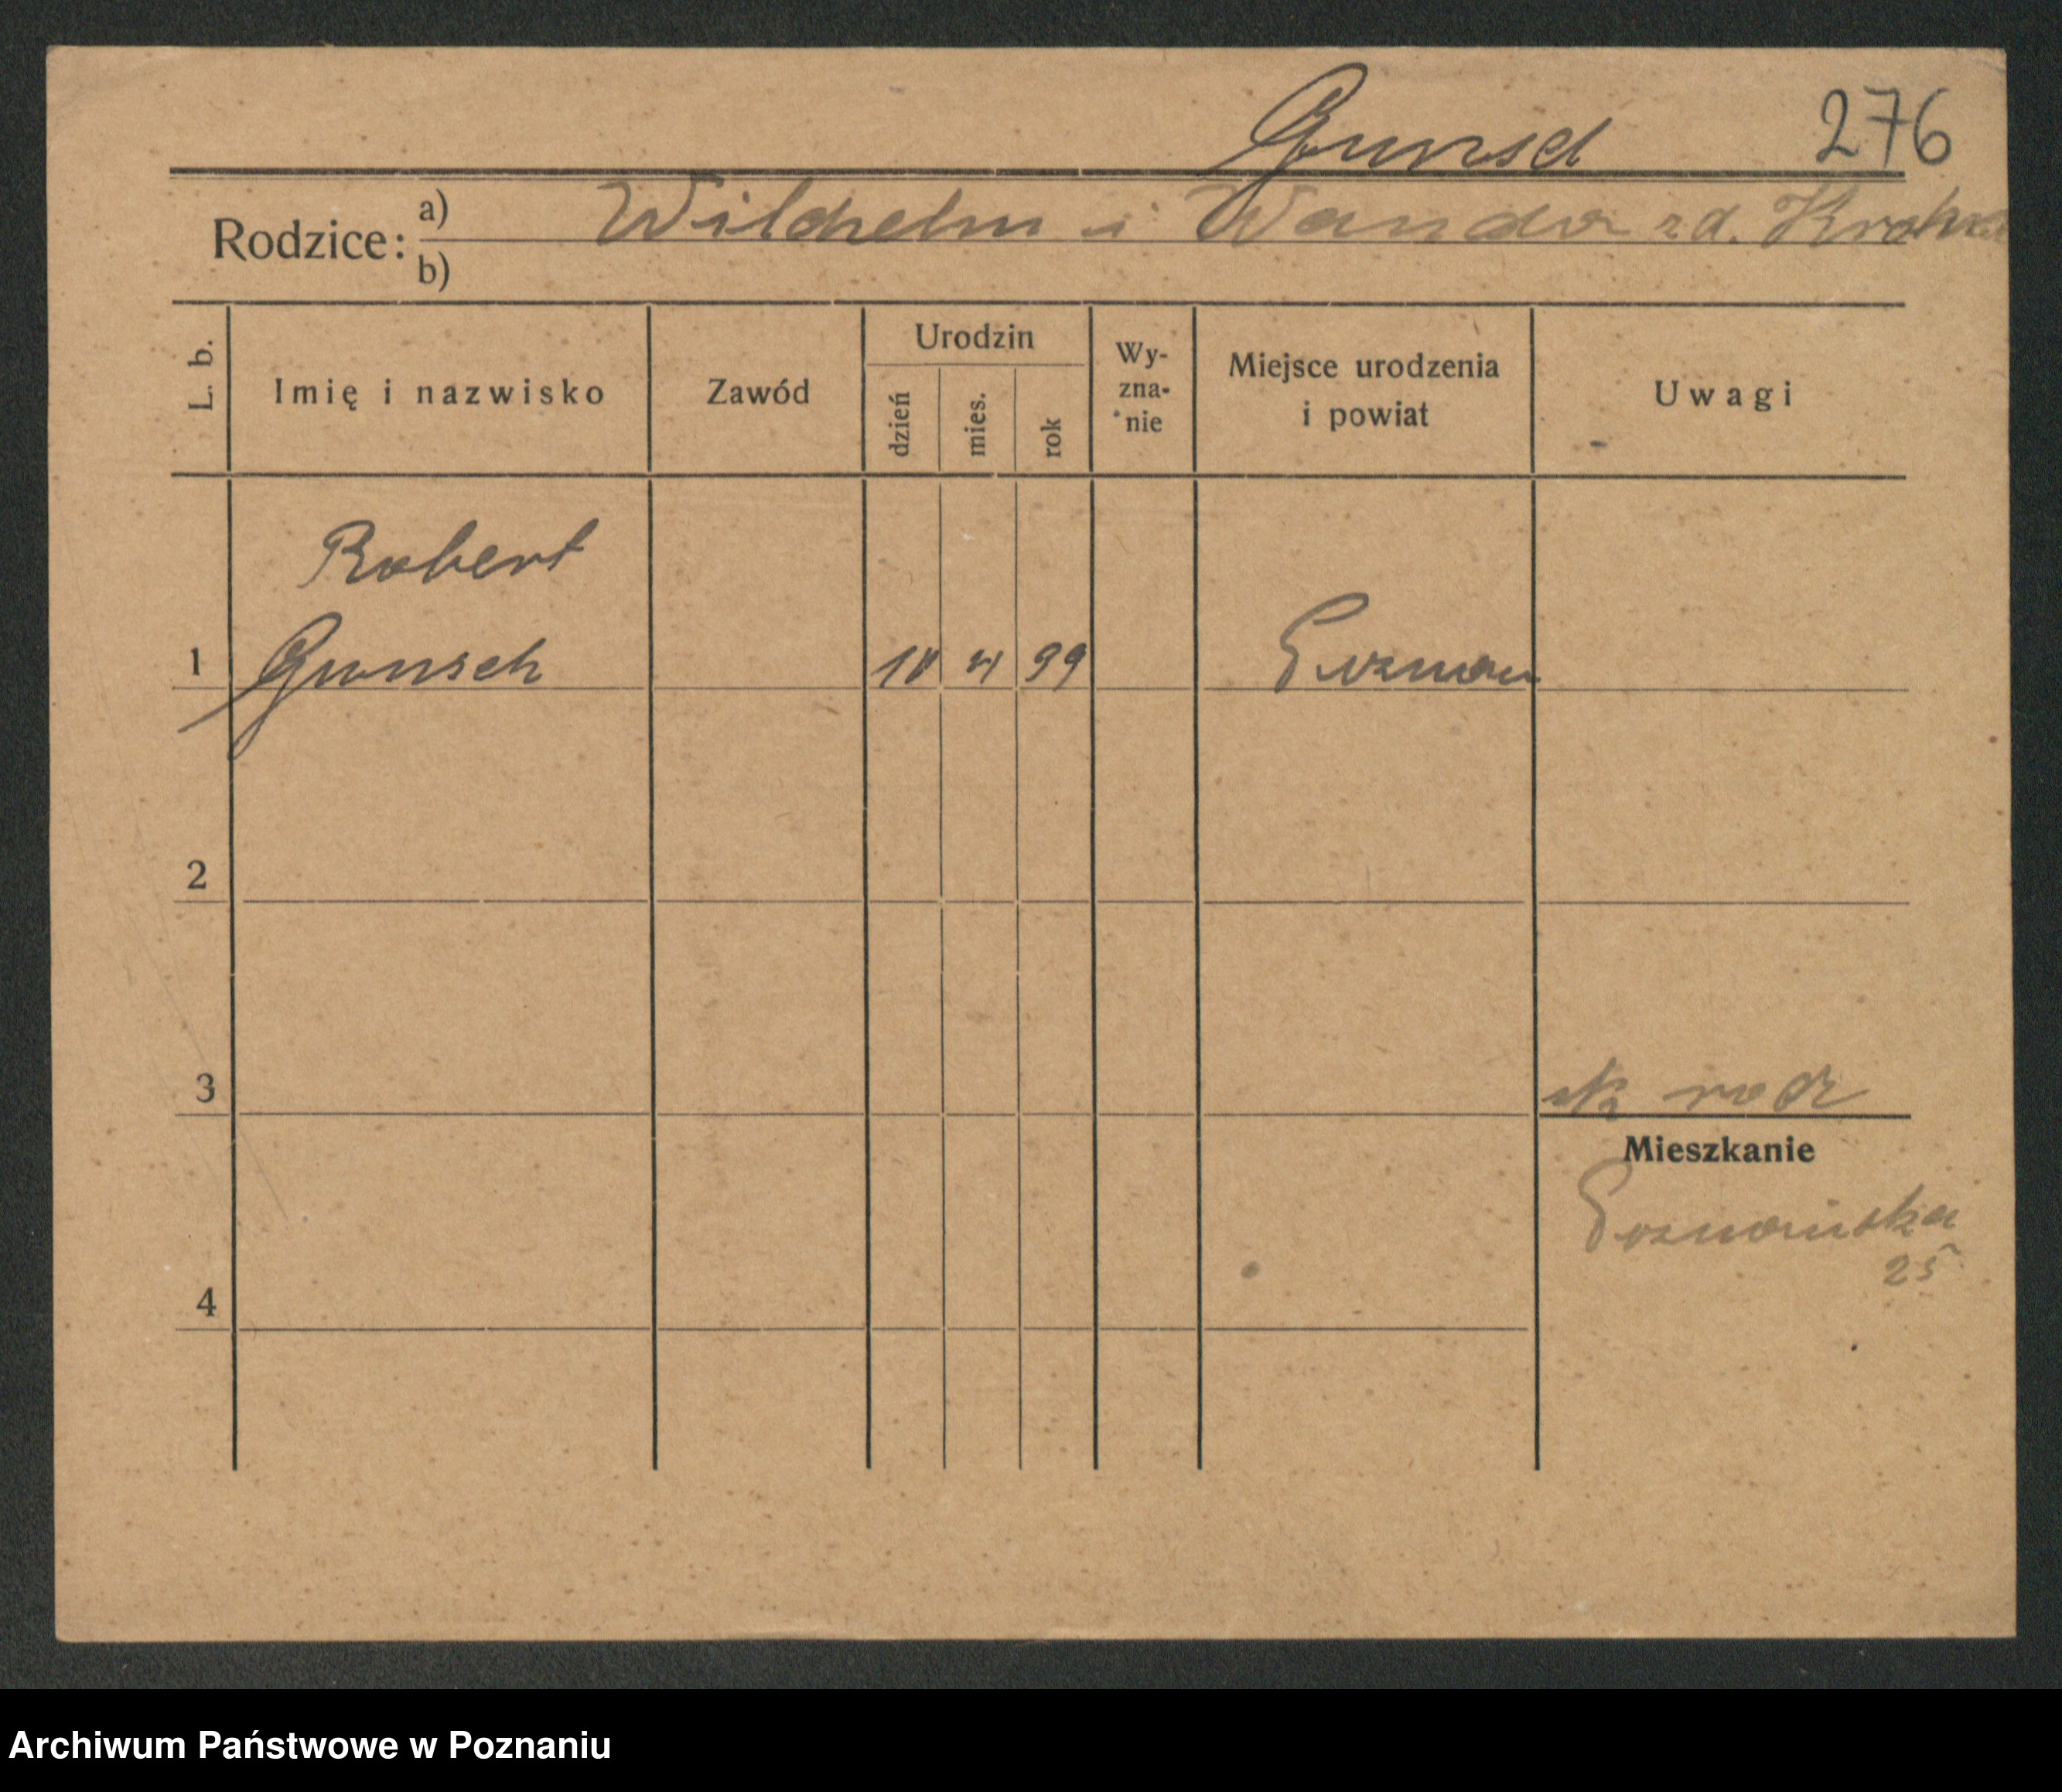 Gunsch 276
Rodzice: a) Wilchelm i Wanda zd.
b)
L. b. Imię i nazwisko Zawód Urodzin dzień mies. rok Wy-zna-nie Miejsce urodzenia i powiat Uwagi
Robert
1 Gunsch 4 39 Poznan
2
3
rodz
Mieszkanie
Poznańska
25
4
Archiwum Państwowe w Poznaniu